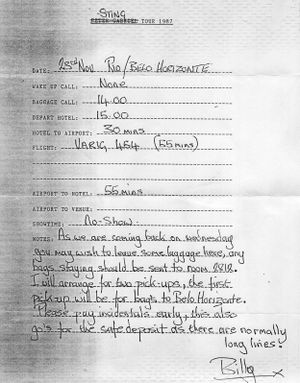 STING
PETER GABRIEL TOUR 1987
DATE: 23rd Nov Rio/Belo Horizonte
WAKE UP CALL: None
BAGGAGE CALL: 14.00
DEPART HOTEL: 15.00
HOTEL TO AIRPORT: 30 mins
FLIGHT: VARIG 454 (55mins)
AIRPORT TO HOTEL: 55mins
AIRPORT TO VENUE:
SHOWTIME: No-Show.
NOTES: As we are coming back on wednesday
you may wish to leave some luggage here, any
bags staying should be sent to room 2818.
I will arrange for two pick-ups, the first
pick-up will be for bags to Belo Horizonte.
Please pay incidentals early, this also
go's for the safe deposit as there are normally
long lines!
Billy x